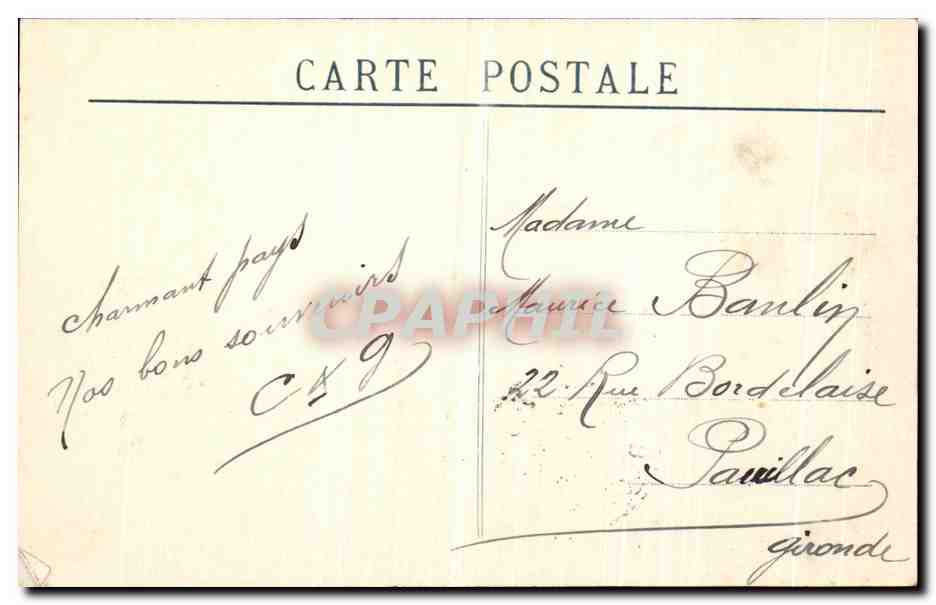 CARTE POSTALE
charmant pays
Nos bons souvenirs
C & g
Madame
Maurice Banlin
22 Rue Bordelaise
Pauillac
gironde
CPAPHIL